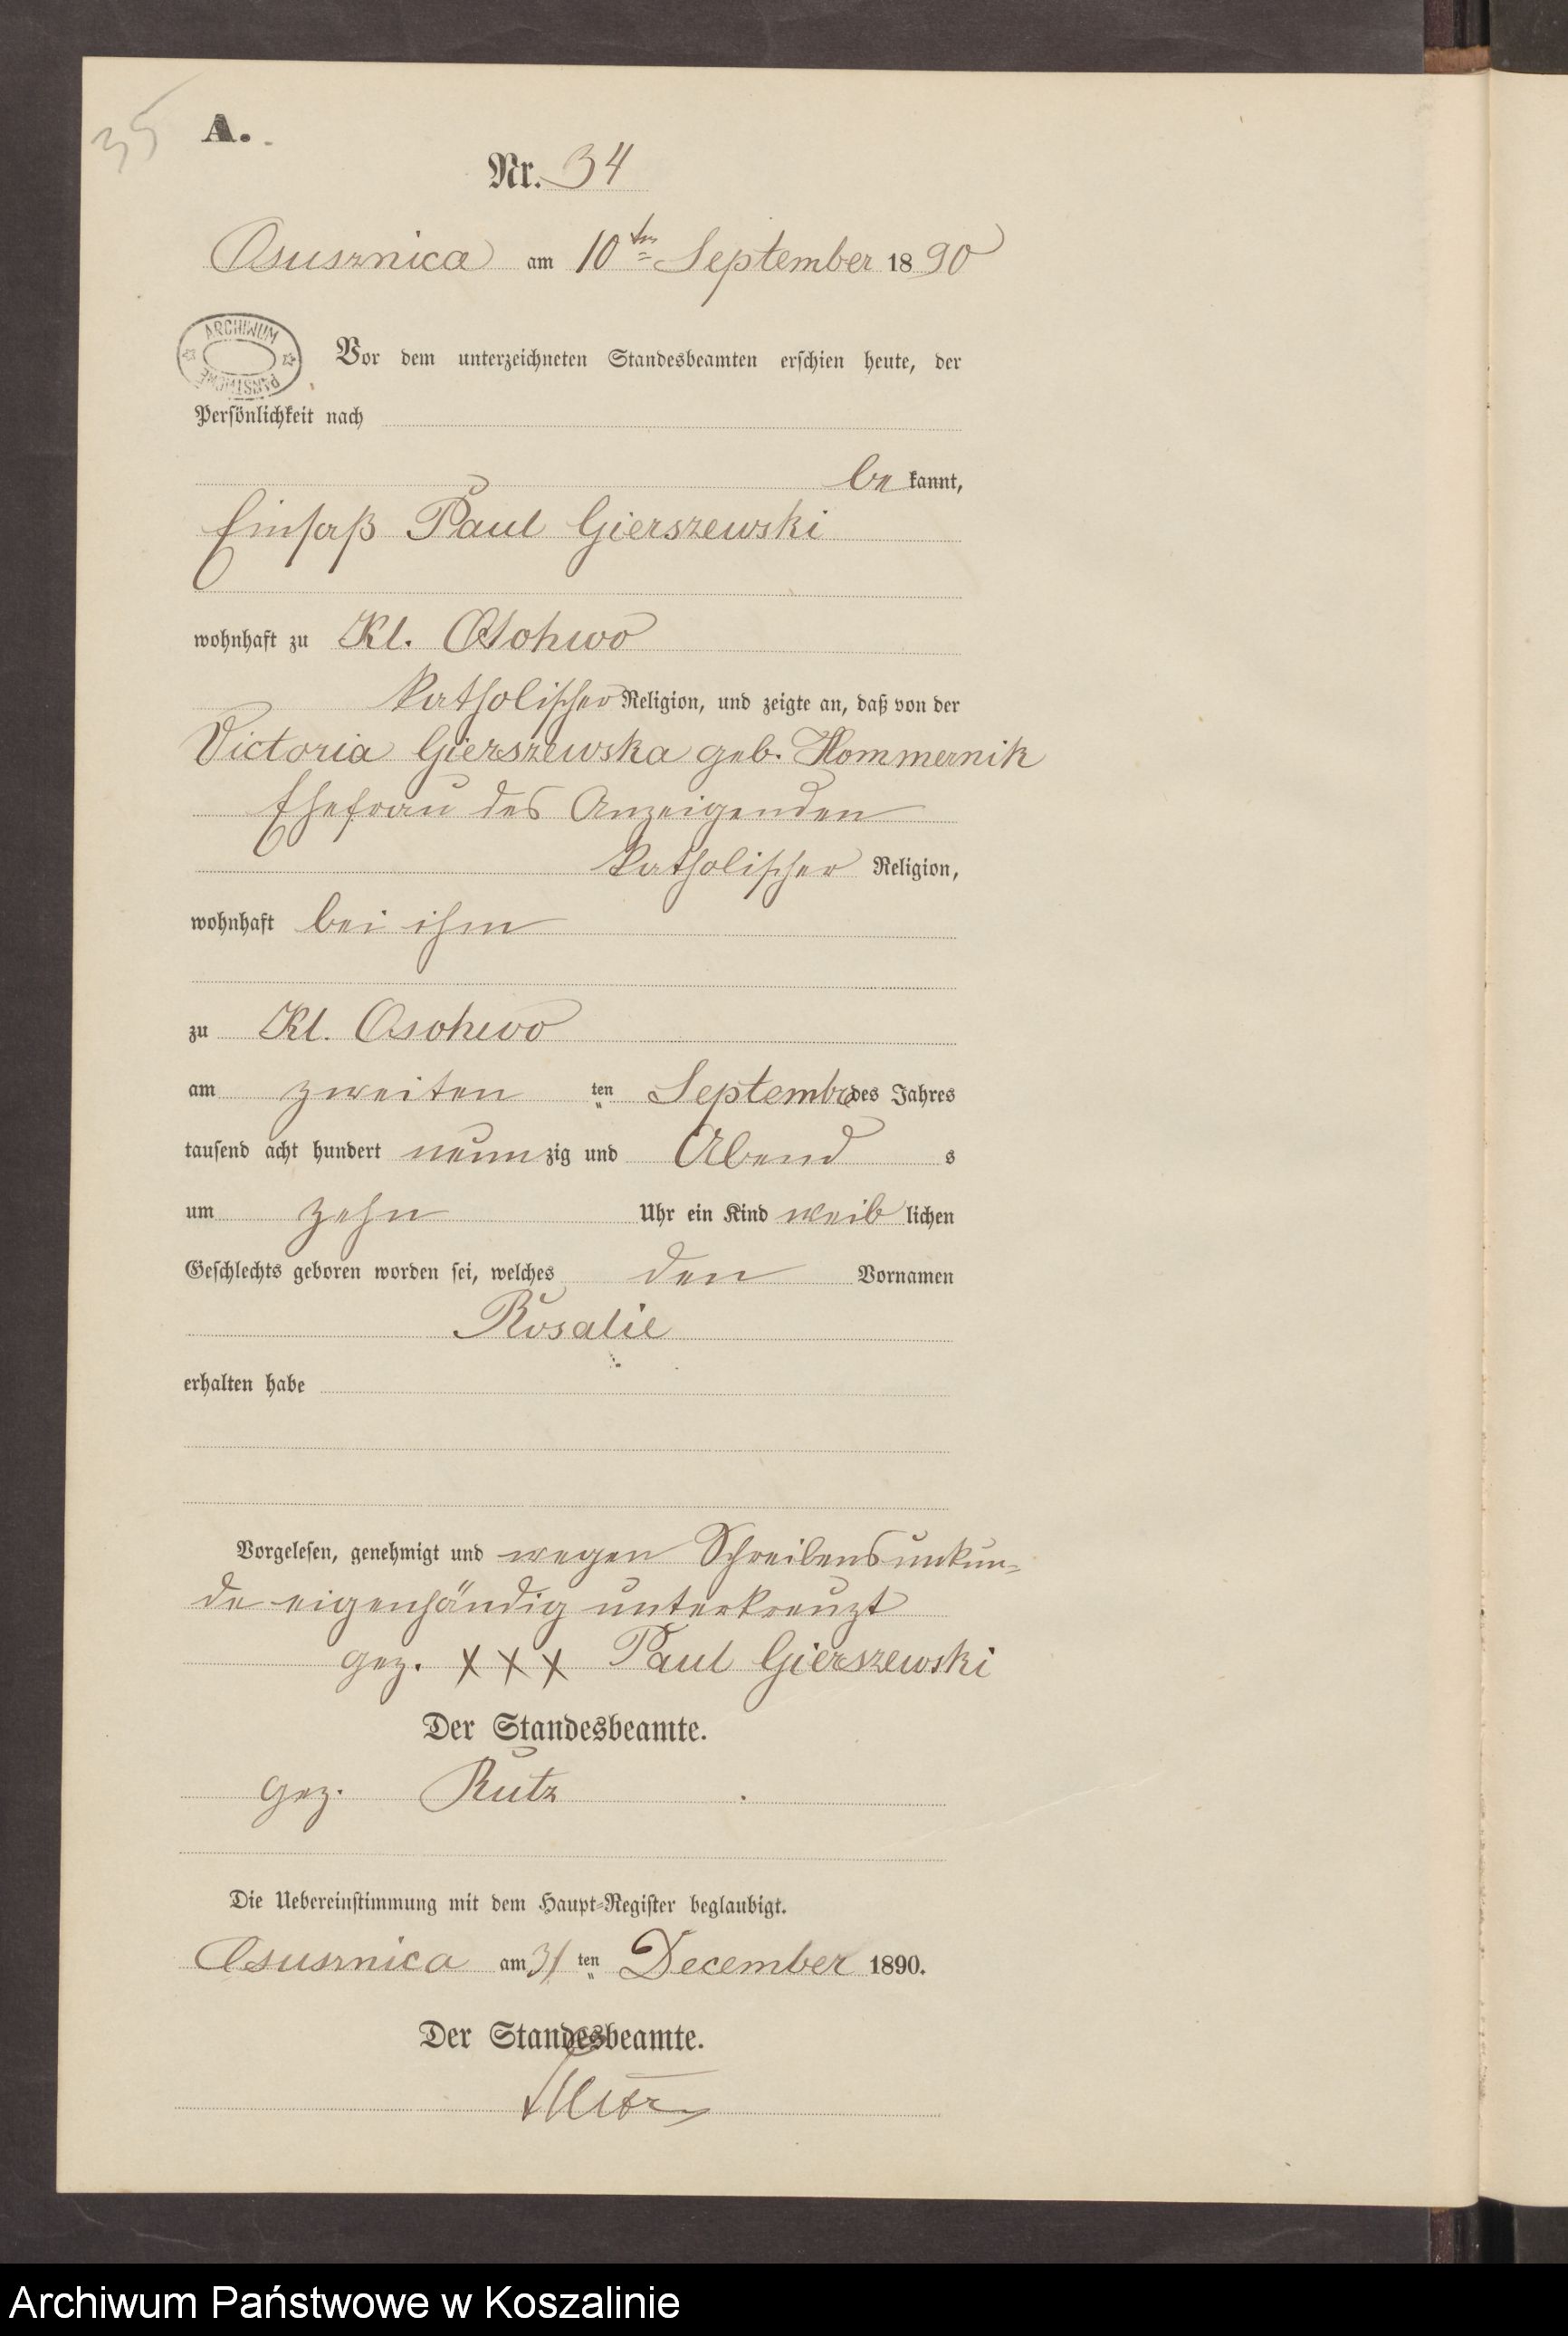 35
A.
Nr. 34
Osusznica am 10ten September 1890
ARCHIWUM
PAŃSTWOWE
Vor dem unterzeichneten Standesbeamten erschien heute, der
Persönlichkeit nach
be kannt,
Einsaß Paul Gierszewski
wohnhaft zu Kl. Osohwo
katholischer Religion, und zeigte an, daß von der
Victoria Gierszewska geb. Hommernik
Ehefrau des Anzeigenden
katholischer Religion,
wohnhaft bei ihm
zu Kl. Osohwo
am zweiten ten September des Jahres
tausend acht hundert neunzig und Abend s
um zehn Uhr ein Kind weib lichen
Geschlechts geboren worden sei, welches den Vornamen
Rosalie
erhalten habe
Vorgelesen, genehmigt und wegen Schreibensunkun-
de eigenhändig unterkreuzt
gez. XXX Paul Gierszewski
Der Standesbeamte.
gez. Rutz
Die Uebereinstimmung mit dem Haupt-Register beglaubigt.
Osusznica am 31 ten December 1890.
Der Standesbeamte.
Archiwum Państwowe w Koszalinie